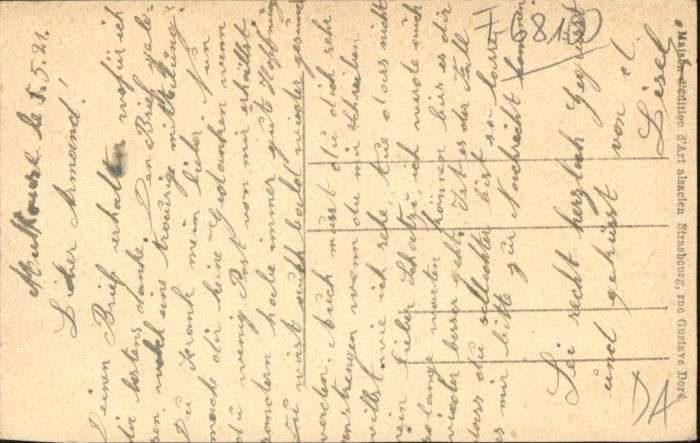 Mulhouse le 5.5.21.
Lieber Armand!
Deinen Brief erhalten wofür ich
dir bestens danke. Den Brief gele-
sen, welch eine traurige mitteilung:
Du krank mein lieber. Nun
mache dir keine Gedanken wenn
du wenig Post von mir erhältst
sondern habe immer gute Hoffnung
Du wirst auch bald wieder gesund
werden. Auch musst du dich sehr
anstrengen wenn du mir schreiben
willst, wie ich sehe. Tue dass nicht
mein lieber Schatz, ich werde auch
solange warten können bis es dir
wieder besser geht. Ist es der Fall
dass du schlechter bist so lasse
es mir bitte zur Nachricht kommen
Sei recht herzlich Gegrüsst
und geküsst von d.
Lisel
F 681
DA
Maison d'édition d'Art alsacien Strasbourg, rue Gustave Doré